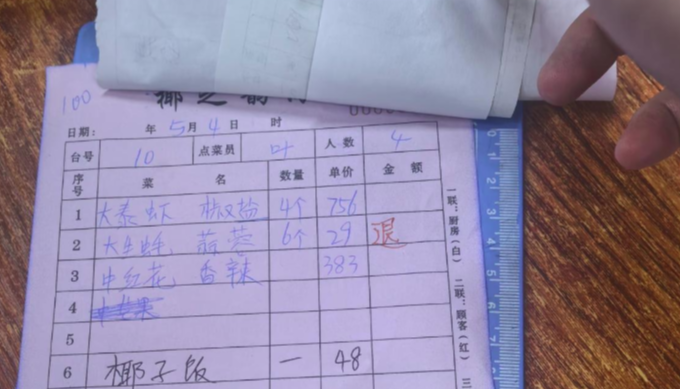 100
椰之韵
日期: 年 5月 4日 时
台号 10 点菜员 叶 人数 4
序号 菜名 数量 单价 金额
1 大泰虾 椒盐 4个 756
2 大生蚝 蒜蓉 6个 29 退
3 中红花 香辣 383
4
5
6 椰子饭 一 48
一联:厨房(白) 二联:顾客(红) 三